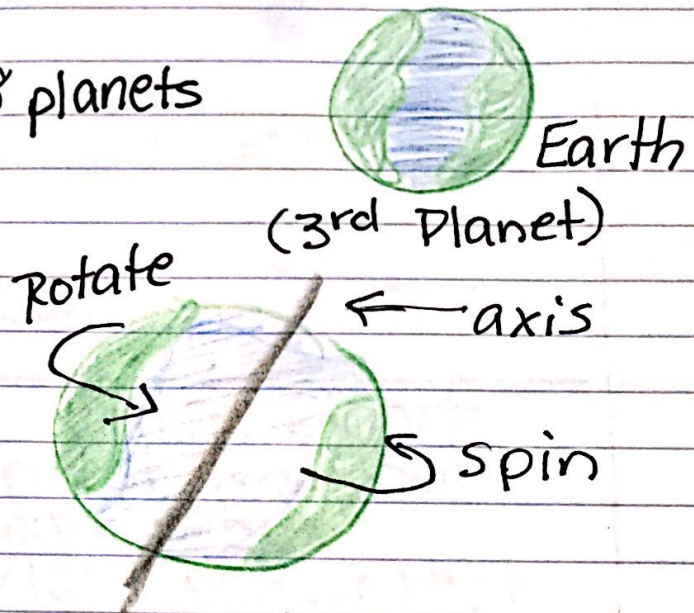 planets
Earth
(3rd Planet)
Rotate
axis
spin